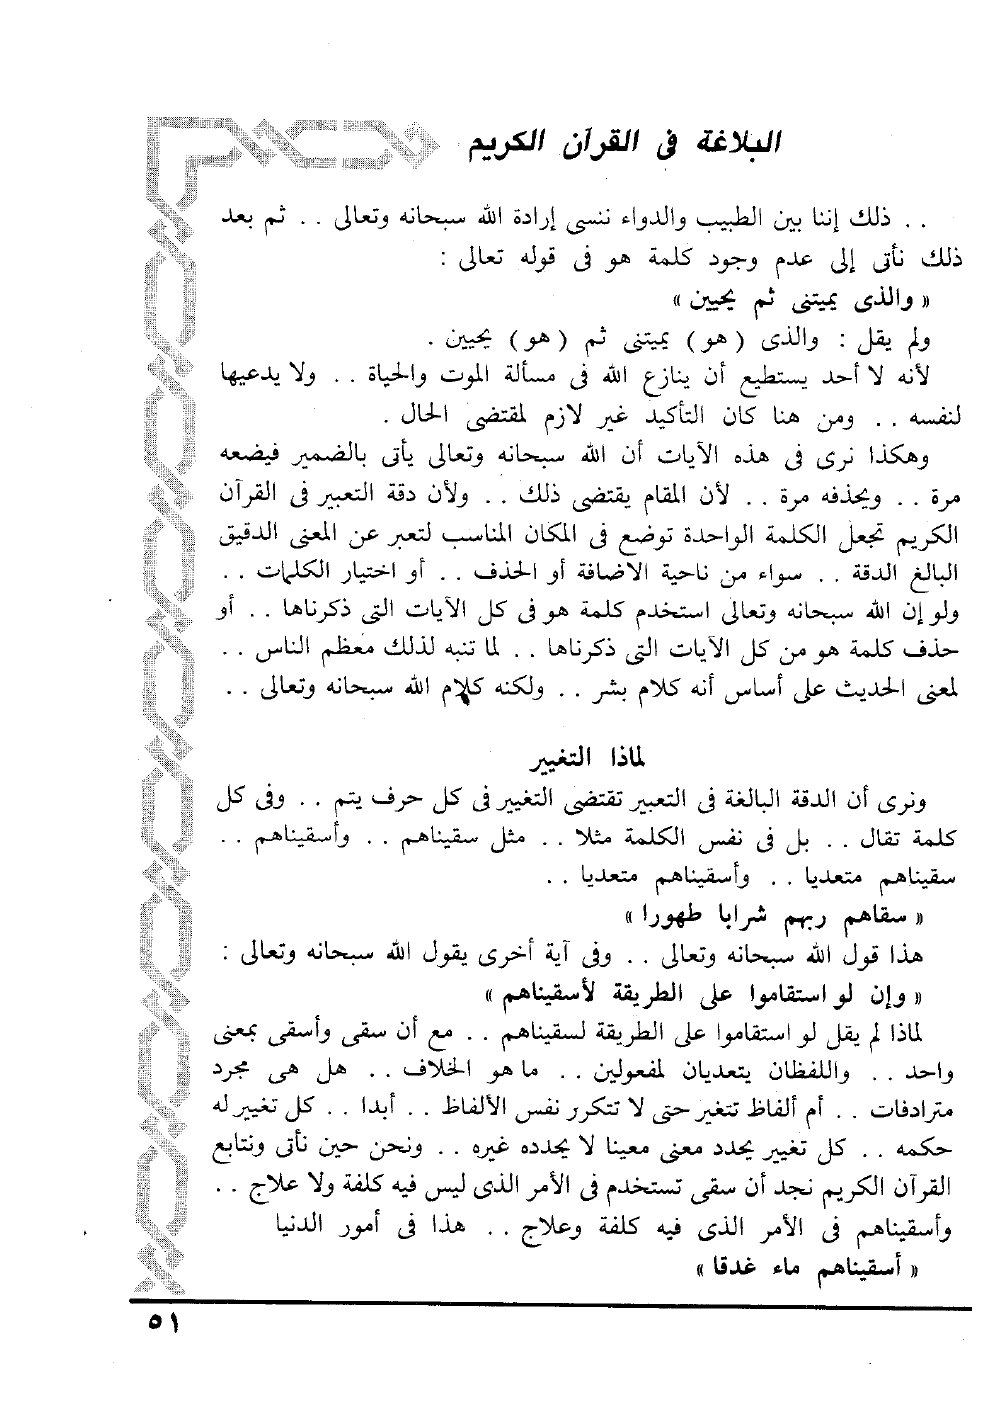 البلاغة فى القرآن الكريم
. . ذلك إننا بين الطبيب والدواء ننسى إرادة الله سبحانه وتعالى . . ثم بعد
ذلك نأتى إلى عدم وجود كلمة هو فى قوله تعالى :
« والذى يميتنى ثم يحيين »
ولم يقل : والذى (هو) يميتنى ثم (هو) يحيين .
لأنه لا أحد يستطيع أن ينازع الله فى مسألة الموت والحياة . . ولا يدعيها
لنفسه . . ومن هنا كان التأكيد غير لازم لمقتضى الحال .
وهكذا نرى فى هذه الآيات أن الله سبحانه وتعالى يأتى بالضمير فيضعه
مرة . . ويحذفه مرة . . لأن المقام يقتضى ذلك . . ولأن دقة التعبير فى القرآن
الكريم تجعل الكلمة الواحدة توضع فى المكان المناسب لتعبر عن المعنى الدقيق
البالغ الدقة . . سواء من ناحية الاضافة أو الحذف . . أو اختيار الكلمات . .
ولو إن الله سبحانه وتعالى استخدم كلمة هو فى كل الآيات التى ذكرناها . . أو
حذف كلمة هو من كل الآيات التى ذكرناها . . لما تنبه لذلك معظم الناس . .
لمعنى الحديث على أساس أنه كلام بشر . . ولكنه كلام الله سبحانه وتعالى . .
لماذا التغيير
ونرى أن الدقة البالغة فى التعبير تقتضى التغيير فى كل حرف يتم . . وفى كل
كلمة تقال . . بل فى نفس الكلمة مثلا . . مثل سقيناهم . . وأسقيناهم . .
سقيناهم متعديا . . وأسقيناهم متعديا . .
« سقاهم ربهم شرابا طهورا »
هذا قول الله سبحانه وتعالى . . وفى آية أخرى يقول الله سبحانه وتعالى :
« وإن لو استقاموا على الطريقة لأسقيناهم »
لماذا لم يقل لو استقاموا على الطريقة لسقيناهم . . مع أن سقى وأسقى بمعنى
واحد . . واللفظان يتعديان لمفعولين . . ما هو الخلاف . . هل هى مجرد
مترادفات . . أم ألفاظ تتغير حتى لا تتكرر نفس الألفاظ . . أبدا . . كل تغيير له
حكمه . . كل تغيير يحدد معنى معينا لا يحدده غيره . . ونحن حين نأتى ونتابع
القرآن الكريم نجد أن سقى تستخدم فى الأمر الذى ليس فيه كلفة ولا علاج . .
وأسقيناهم فى الأمر الذى فيه كلفة وعلاج . . هذا فى أمور الدنيا
« أسقيناهم ماء غدقا »
٥١